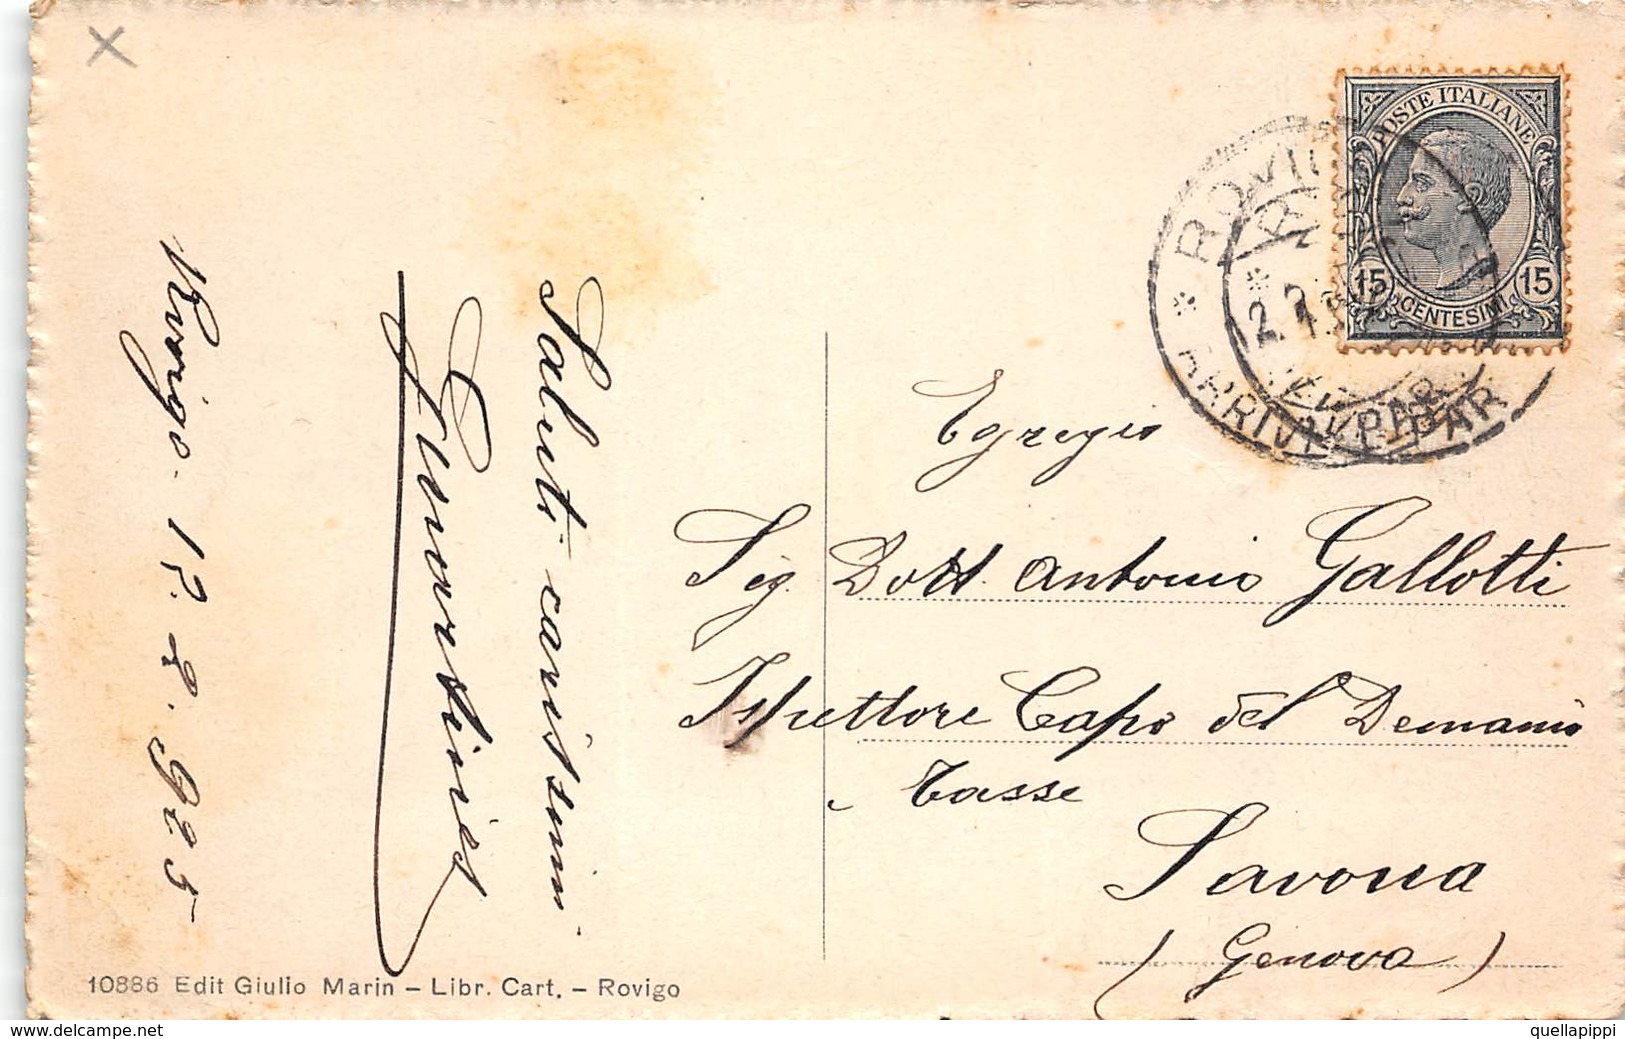 Rovigo - 17. 8. 925
Saluti carissimi
Egregio
Sig. Dott. Antonio Gallotti
Ispettore Capo del Demanio
e Tasse
Savona
(Genova)
POSTE ITALIANE
15 15
CENTESIMI
10886 Edit Giulio Marin – Libr. Cart. – Rovigo
delcampe.net
quellapippi